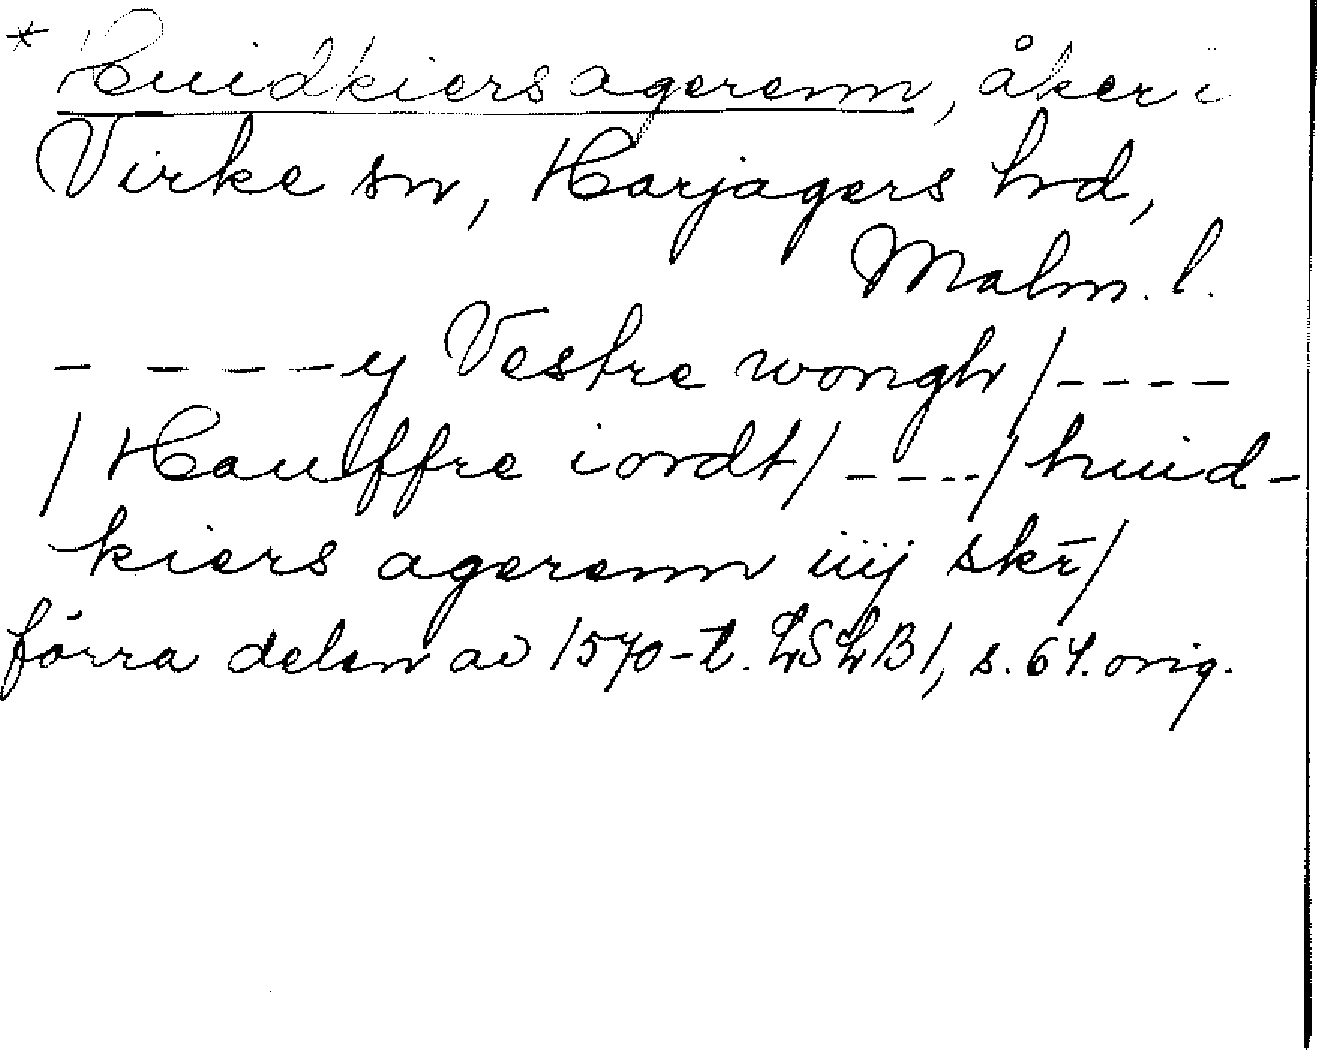 * Huidkiers agerenn, åker i
Virke sn, Harjagers hd,
Malm. l.
- - - - - y Vestre wongh / - - - -
/ Hauffre iordt / - - - - / huid-
kiers agerenn iiij skr̄ /
förra delen av 1570-t. LSLB1, s. 64. orig.